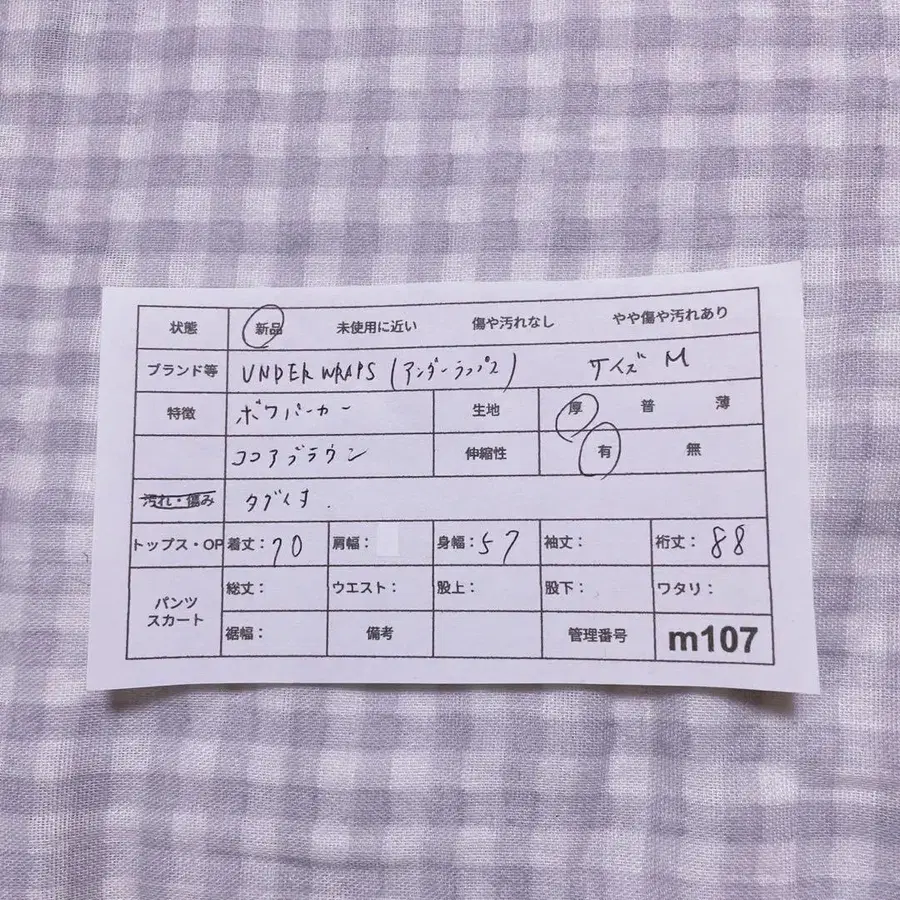 状態 新品 未使用に近い 傷や汚れなし やや傷や汚れあり
ブランド等 UNDER WRAPS (アンダーラップス) サイズ M
特徴 ボアパーカー 生地 厚 普 薄
ココアブラウン 伸縮性 有 無
汚れ・傷み タグ付き.
トップス・OP 着丈:70 肩幅: 身幅:57 袖丈: 裄丈:88
パンツ スカート 総丈: ウエスト: 股上: 股下: ワタリ:
裾幅: 備考 管理番号 m107